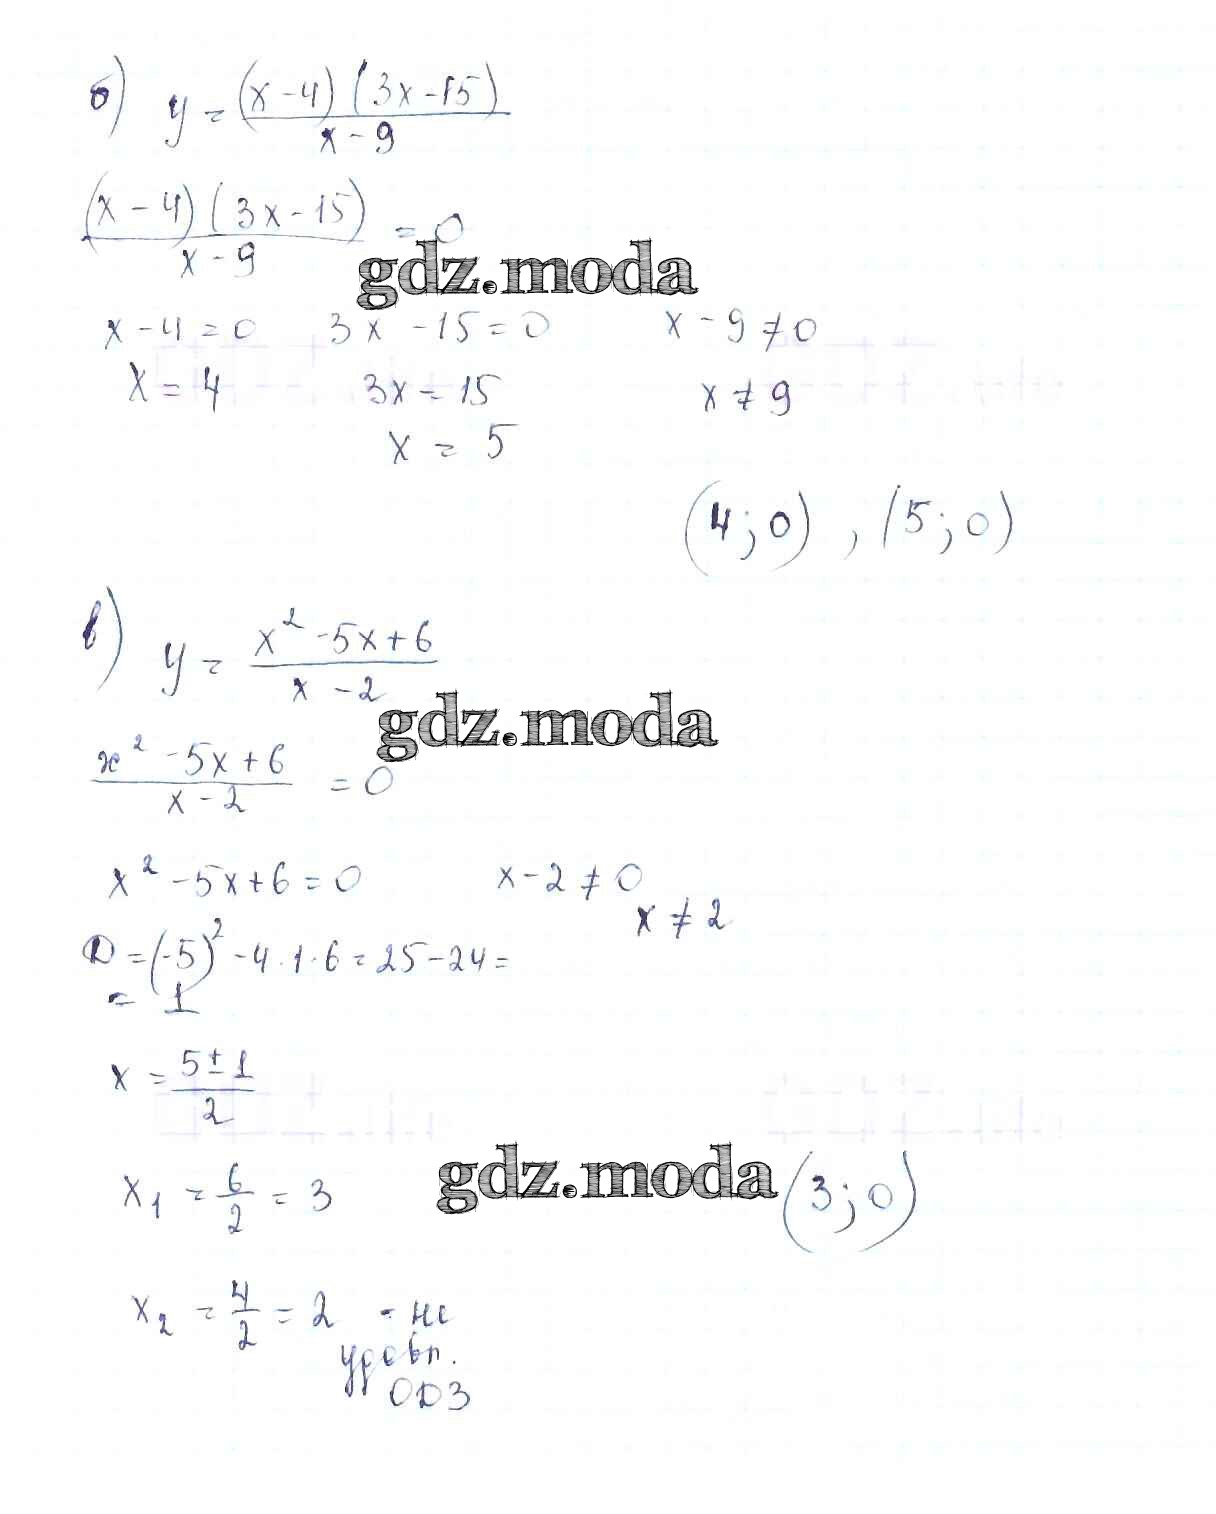 б) y = (x - 4)(3x - 15) / x - 9
(x - 4)(3x - 15) / x - 9 = 0
gdz.moda
x - 4 = 0 3x - 15 = 0 x - 9 ≠ 0
x = 4 3x = 15 x ≠ 9
x = 5
(4; 0), (5; 0)
в) y = x² - 5x + 6 / x - 2
gdz.moda
x² - 5x + 6 / x - 2 = 0
x² - 5x + 6 = 0 x - 2 ≠ 0
x ≠ 2
D = (-5)² - 4 · 1 · 6 = 25 - 24 =
= 1
x = 5 ± 1 / 2
x₁ = 6/2 = 3 gdz.moda (3; 0)
x₂ = 4/2 = 2 - не
удовл.
ОДЗ